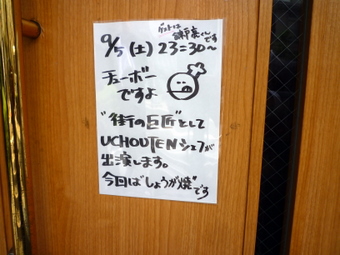 9/5(土)23:30〜
ゲストは
です
チューボー
ですよ
"街の巨匠"として
UCHOUTENシェフが
出演します。
今回は"しょうが焼"です